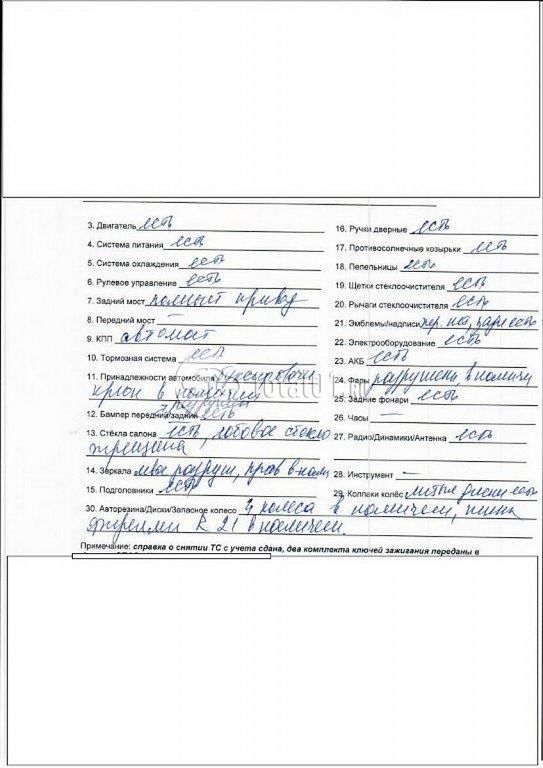 3. Двигатель есть
4. Система питания есть
5. Система охлаждения есть
6. Рулевое управление есть
7. Задний мост полный привод
8. Передний мост —
9. КПП автомат
10. Тормозная система есть
11. Принадлежности автомобиля буксировочн
крюк в наличии
12. Бампер передний/задний есть
13. Стёкла салона есть, лобовое стекло
трещина
14. Зеркала левое разруш, прав в нали
15. Подголовники есть
16. Ручки дверные есть
17. Противосолнечные козырьки есть
18. Пепельницы есть
19. Щетки стеклоочистителя есть
20. Рычаги стеклоочистителя есть
21. Эмблемы/надписи пер. нет, задн есть
22. Электрооборудование есть
23. АКБ есть
24. Фары разрушены, в наличи
25. Задние фонари есть
26. Часы —
27. Радио/Динамики/Антенна есть
28. Инструмент —
29. Колпаки колёс литые диски есть
30. Авторезина/Диски/Запасное колесо 4 колеса в наличии, шина
R 21 в наличии.
Примечание: справка о снятии ТС с учета сдана, два комплекта ключей зажигания переданы в